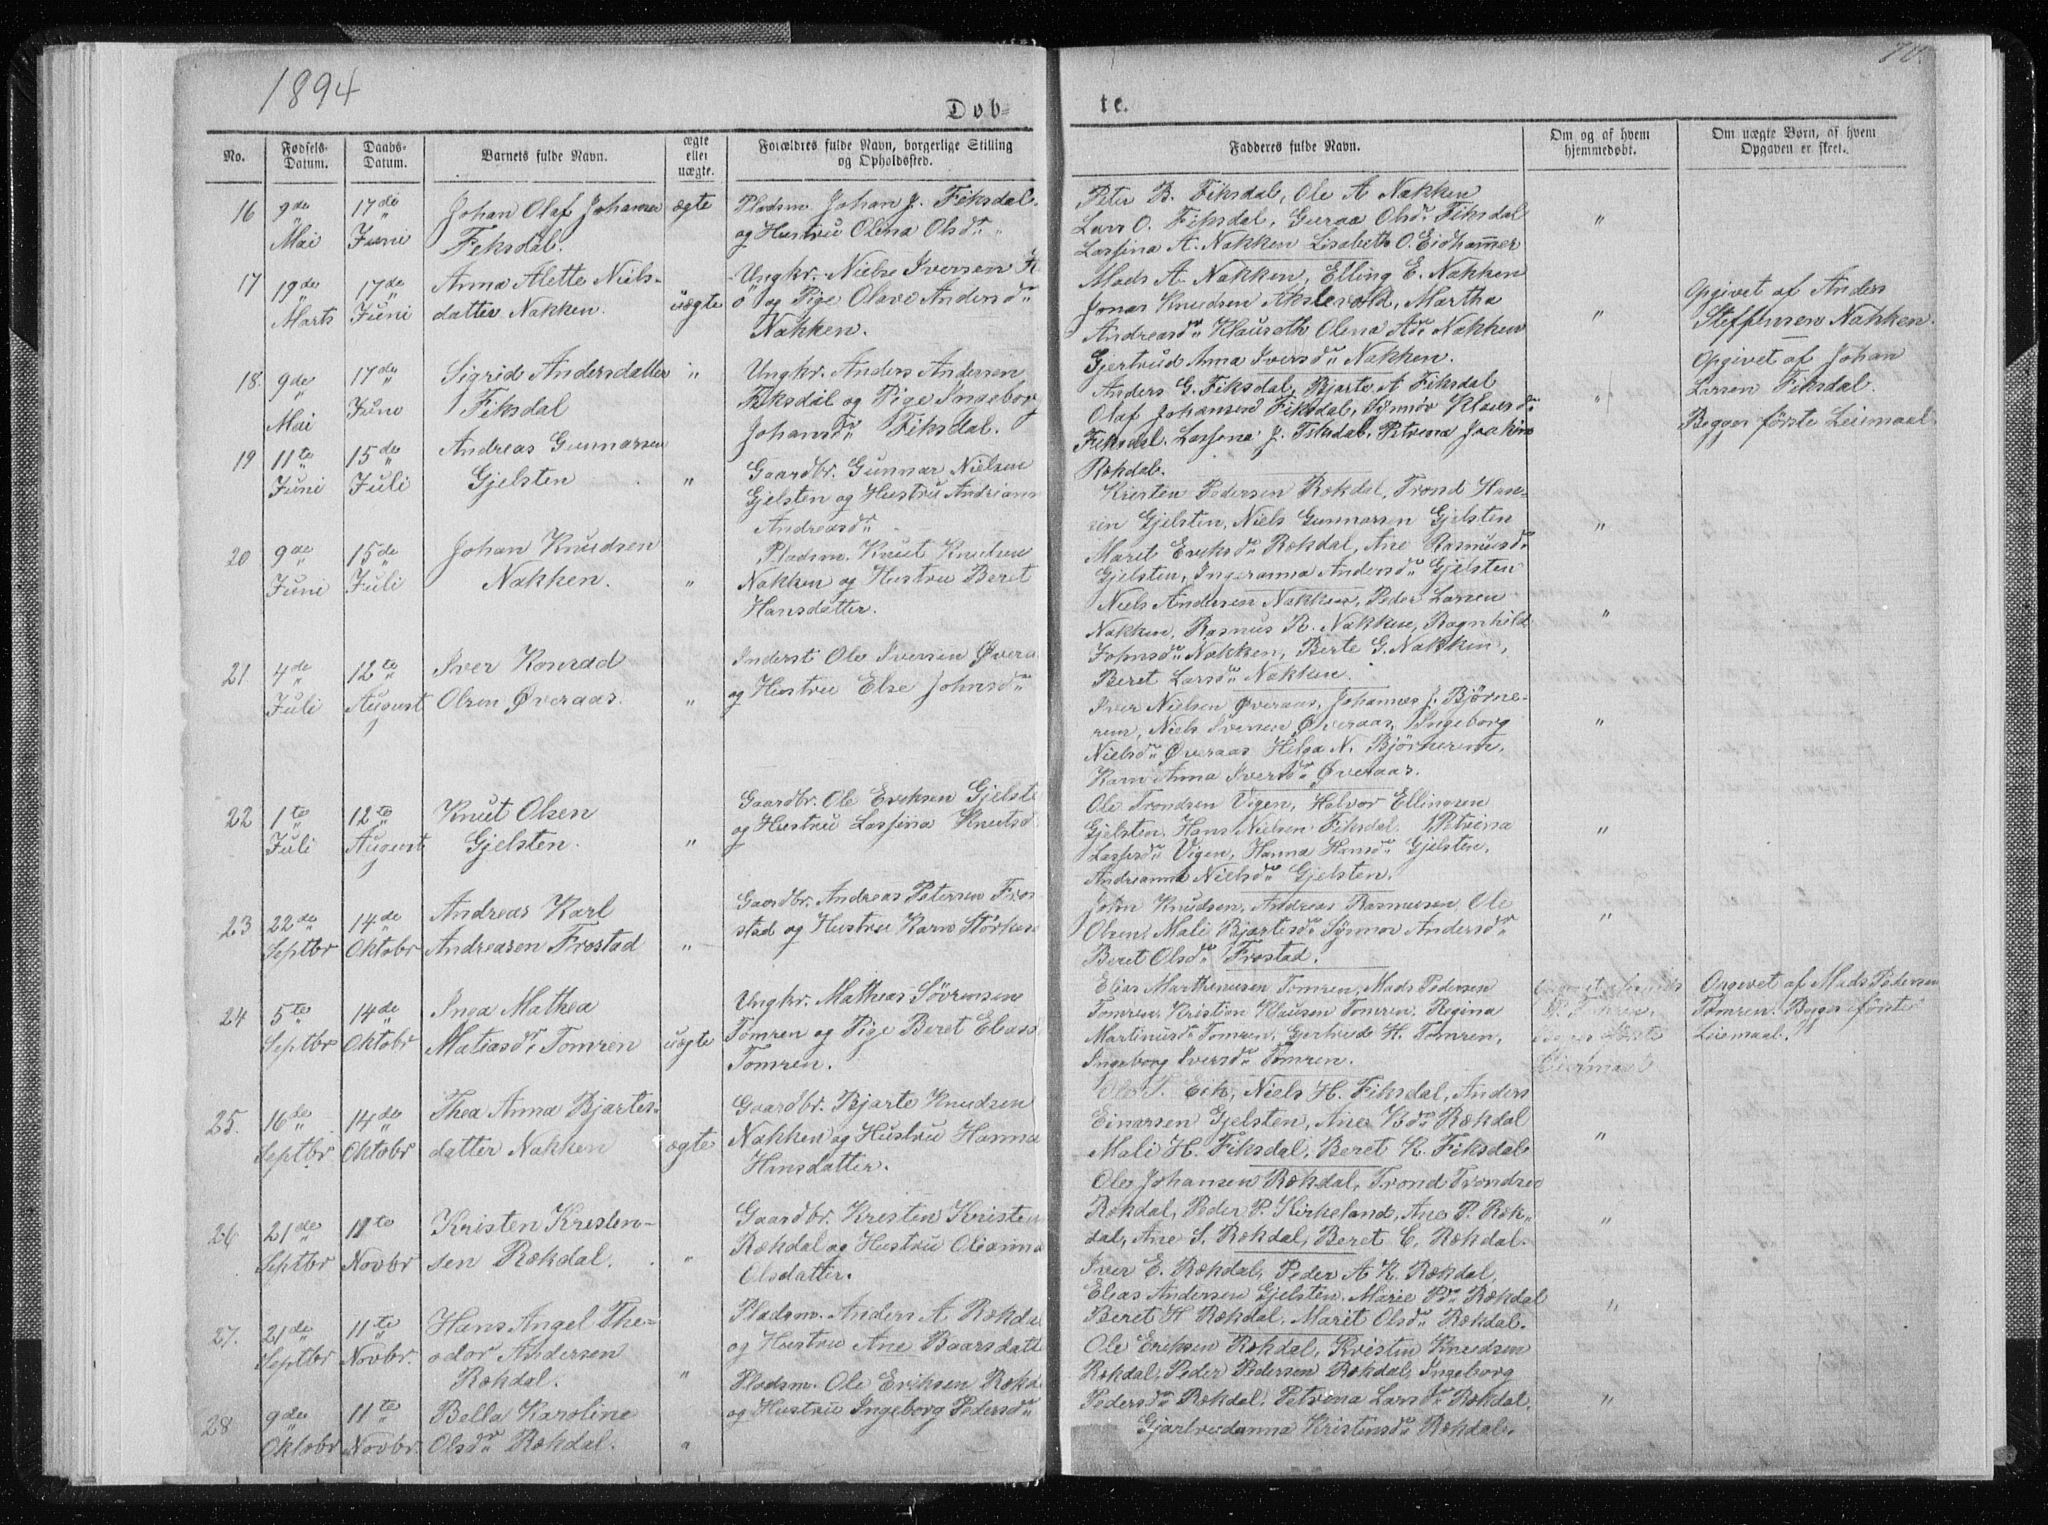 1894
70.
Døb-
te.
No.
Fødsels-
Datum.
Daabs-
Datum.
Barnets fulde Navn.
ægte
eller
uægte.
Forældres fulde Navn, borgerlige Stilling
og Opholdssted.
Fadderes fulde Navn.
Om og af hvem
hjemmedøbt.
Om uægte Børn, af hvem
Opgaven er skeet.
16
9de
Mai
17de
Juni
Johan Olaf Johansen
Fiksdal.
ægte
Pladsm. Johan J. Fiksdal.
og Hustru Olena Olsdr
Peter B. Fiksdal, Ole A Nakken
Lars O. Fiksdal, Guraa Olsdr Fiksdal
Lassina A. Nakken Lisabeth O. Eidhammer
"
17
19de
Marts
17de
Juni
Anna Alette Niels-
datter Nakken.
uægte
Ungkr. Niels Iversen
og Pige Olave Andersdr
Nakken.
Mads A. Nakken, Elling E. Nakken
Jonas Knudsen Akslevold, Martha
Andreasdr Klauseth Olena Adr Nakken
Gjertrud Anna Iversdr Nakken.
"
Opgivet af Anders
Steffensen Nakken.
18.
9de
Mai
17de
Juni
Sigrid Andersdatter
Fiksdal
"
Ungkr. Anders Andersen
Fiksdal og Pige Ingeborg
Johansdr Fiksdal.
Anders G. Fiksdal, Bjarte A Fiksdal
Olaf Johansen Fiksdal, Synnøv Klausdr
Fiksdal. Lassina J. Fiksdal, Petrina Joakims
Rekdal.
"
Opgivet af Johan
Larsen Fiksdal.
Begges første Leiemaal
19
11te
Juni
15de
Juli
Andreas Gunnarsen
Gjelsten
"
Gaardbr. Gunnar Nielsen
Gjelsten og Hustru Andriann
Andreasdr
Kristen Pedersen Rekdal, Trond Han-
sen Gjelsten, Niels Gunnarsen Gjelsten
Marit Eriksdr Rekdal, Ane Rasmusdr
Gjelsten, Ingeranna Andersdr Gjelsten
"
20
9de
Juni
15de
Juli
Johan Knudsen
Nakken.
"
Pladsm. Knut Knutsen
Nakken og Hustru Beret
Hansdatter.
Niels Andersen Nakken, Peder Larsen
Nakken, Rasmus R. Nakken, Ragnhild
Johnsdr Nakken, Berte G. Nakken,
Beret Larsdr Nakken.
"
21
4de
Juli
12te
August
Iver Konrad
Olsen Øveraas.
"
Inderst Ole Iversen Øvera
og Hustru Else Johnsdr
Iver Nielsen Øveraas, Johannes J. Bjørne-
rem, Niels Iversen Øveraas, Ingeborg
Nielsdr Øveraas Helga N. Bjørnerem,
Karn Anna Iversdr Øveraas.
"
22
1te
Juli
12te
August
Knut Olsen
Gjelsten.
"
Gaardbr. Ole Eriksen Gjelste
og Hustru Lassina Knutsd
Ole Trondsen Vigen, Halvor Ellingsen
Gjelsten, Hans Nielsen Fiksdal. Petrina
Lassesdr Vigen, Hanna Hansdr Gjelsten,
Andreanna Nielsdr Gjelsten.
"
23
22de
Septbr
14de
Oktobr
Andreas Karl
Andreasen Frostad
"
Gaardbr. Andreas Petersen Fros
stad og Hustru Karn Størkus
John Knudsen, Andreas Rasmusen, Ole
Olsen, Mali Bjartesdr Synnøv Andersdr
Beret Olsdr Frostad.
"
24
5te
Septbr
14de
Oktobr
Inga Mathea
Matiasdr Tomren
uægte
Ungkr. Mathias Sørensen
Tomren og Pige Beret Eliasd
Tomren.
Elias Marthinusen Tomren, Mads Pedersen
Tomren, Kristian Klausen Tomren, Regina
Martinusdr Tomren, Gertrude H. Tomren,
Ingeborg Iversdr Tomren.
Opgivet af Mads Pedersen
Tomren. Begges første
Leiemaal.
25.
16de
Septbr
14de
Oktobr
Thea Anna Bjartes-
datter Nakken
ægte
Gaardbr. Bjarte Knudsen
Nakken og Hustru Hanna
Hansdatter.
Ole T. Eik, Niels H. Fiksdal, Anders
Einarsen Gjelsten, Ane Kdr Rekdal
Mali H. Fiksdal, Beret K. Fiksdal
"
26
21de
Septbr
11te
Novbr
Kristen Kristen-
sen Rekdal.
"
Gaardbr. Kristen Kristen
Rekdal og Hustru Olianna
Olsdatter.
Ole Johansen Rekdal, Trond Trondsen
Rekdal, Peder P. Kirkeland, Ane P. Rek-
dal, Ane S. Rekdal, Beret E. Rekdal.
"
27.
21de
Septbr
11te
Novbr.
Hans Angel The-
odor Andersen
Rekdal.
"
Pladsm. Anders A Rekda
og Hustru Ane Baarsdatt
Iver E. Rekdal, Peder A K. Rekdal,
Elias Andersen Gjelsten, Marie Pdr Rekdal
Beret H Rekdal, Marit Olsdr Rekdal.
"
28
9de
Oktobr
11te
Novbr.
Bella Karoline
Olsdr Rekdal.
"
Pladsm. Ole Eriksen Rekd
og Hustru Ingeborg Pedersdr
Ole Eriksen Rekdal, Kristen Knudsen
Rekdal, Peder Pedersen Rekdal, Ingeborg
Pedersdr Rekdal, Petrina Larsdr Rekdal,
Gjertrudanna Kristensdr Rekdal.
"